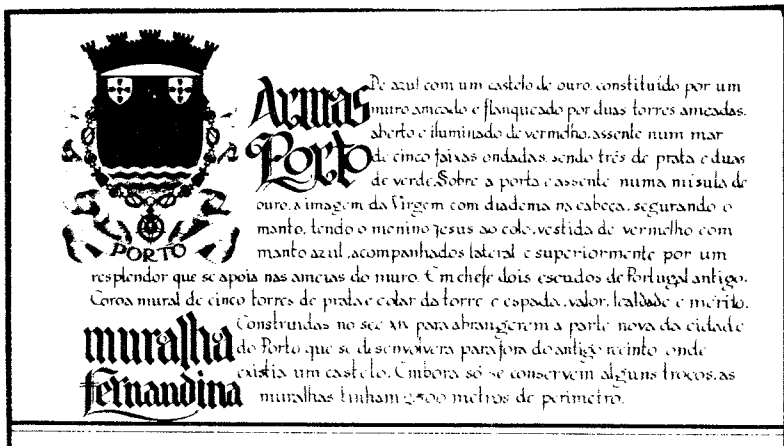 PORTO
Armas
Porto
De azul com um castelo de ouro, constituído por um
muro ameado e flanqueado por duas torres ameadas,
aberto e iluminado de vermelho, assente num mar
de cinco faixas ondadas, sendo três de prata e duas
de verde. Sobre a porta e assente numa mísula de
ouro, a imagem da Virgem com diadema na cabeça, segurando o
manto, tendo o menino Jesus ao colo, vestida de vermelho com
manto azul, acompanhados lateral e superiormente por um
resplendor que se apoia nas ameias do muro. Em chefe dois escudos de Portugal antigo.
Coroa mural de cinco torres de prata e colar da torre e espada, valor, lealdade e mérito.
muralha
fernandina
Construidas no sec XIV para abrangerem a parte nova da cidade
do Porto que se desenvolvera para fora do antigo recinto onde
existia um castelo. Embora só se conservem alguns troços, as
muralhas tinham 2.500 metros de perimetro.